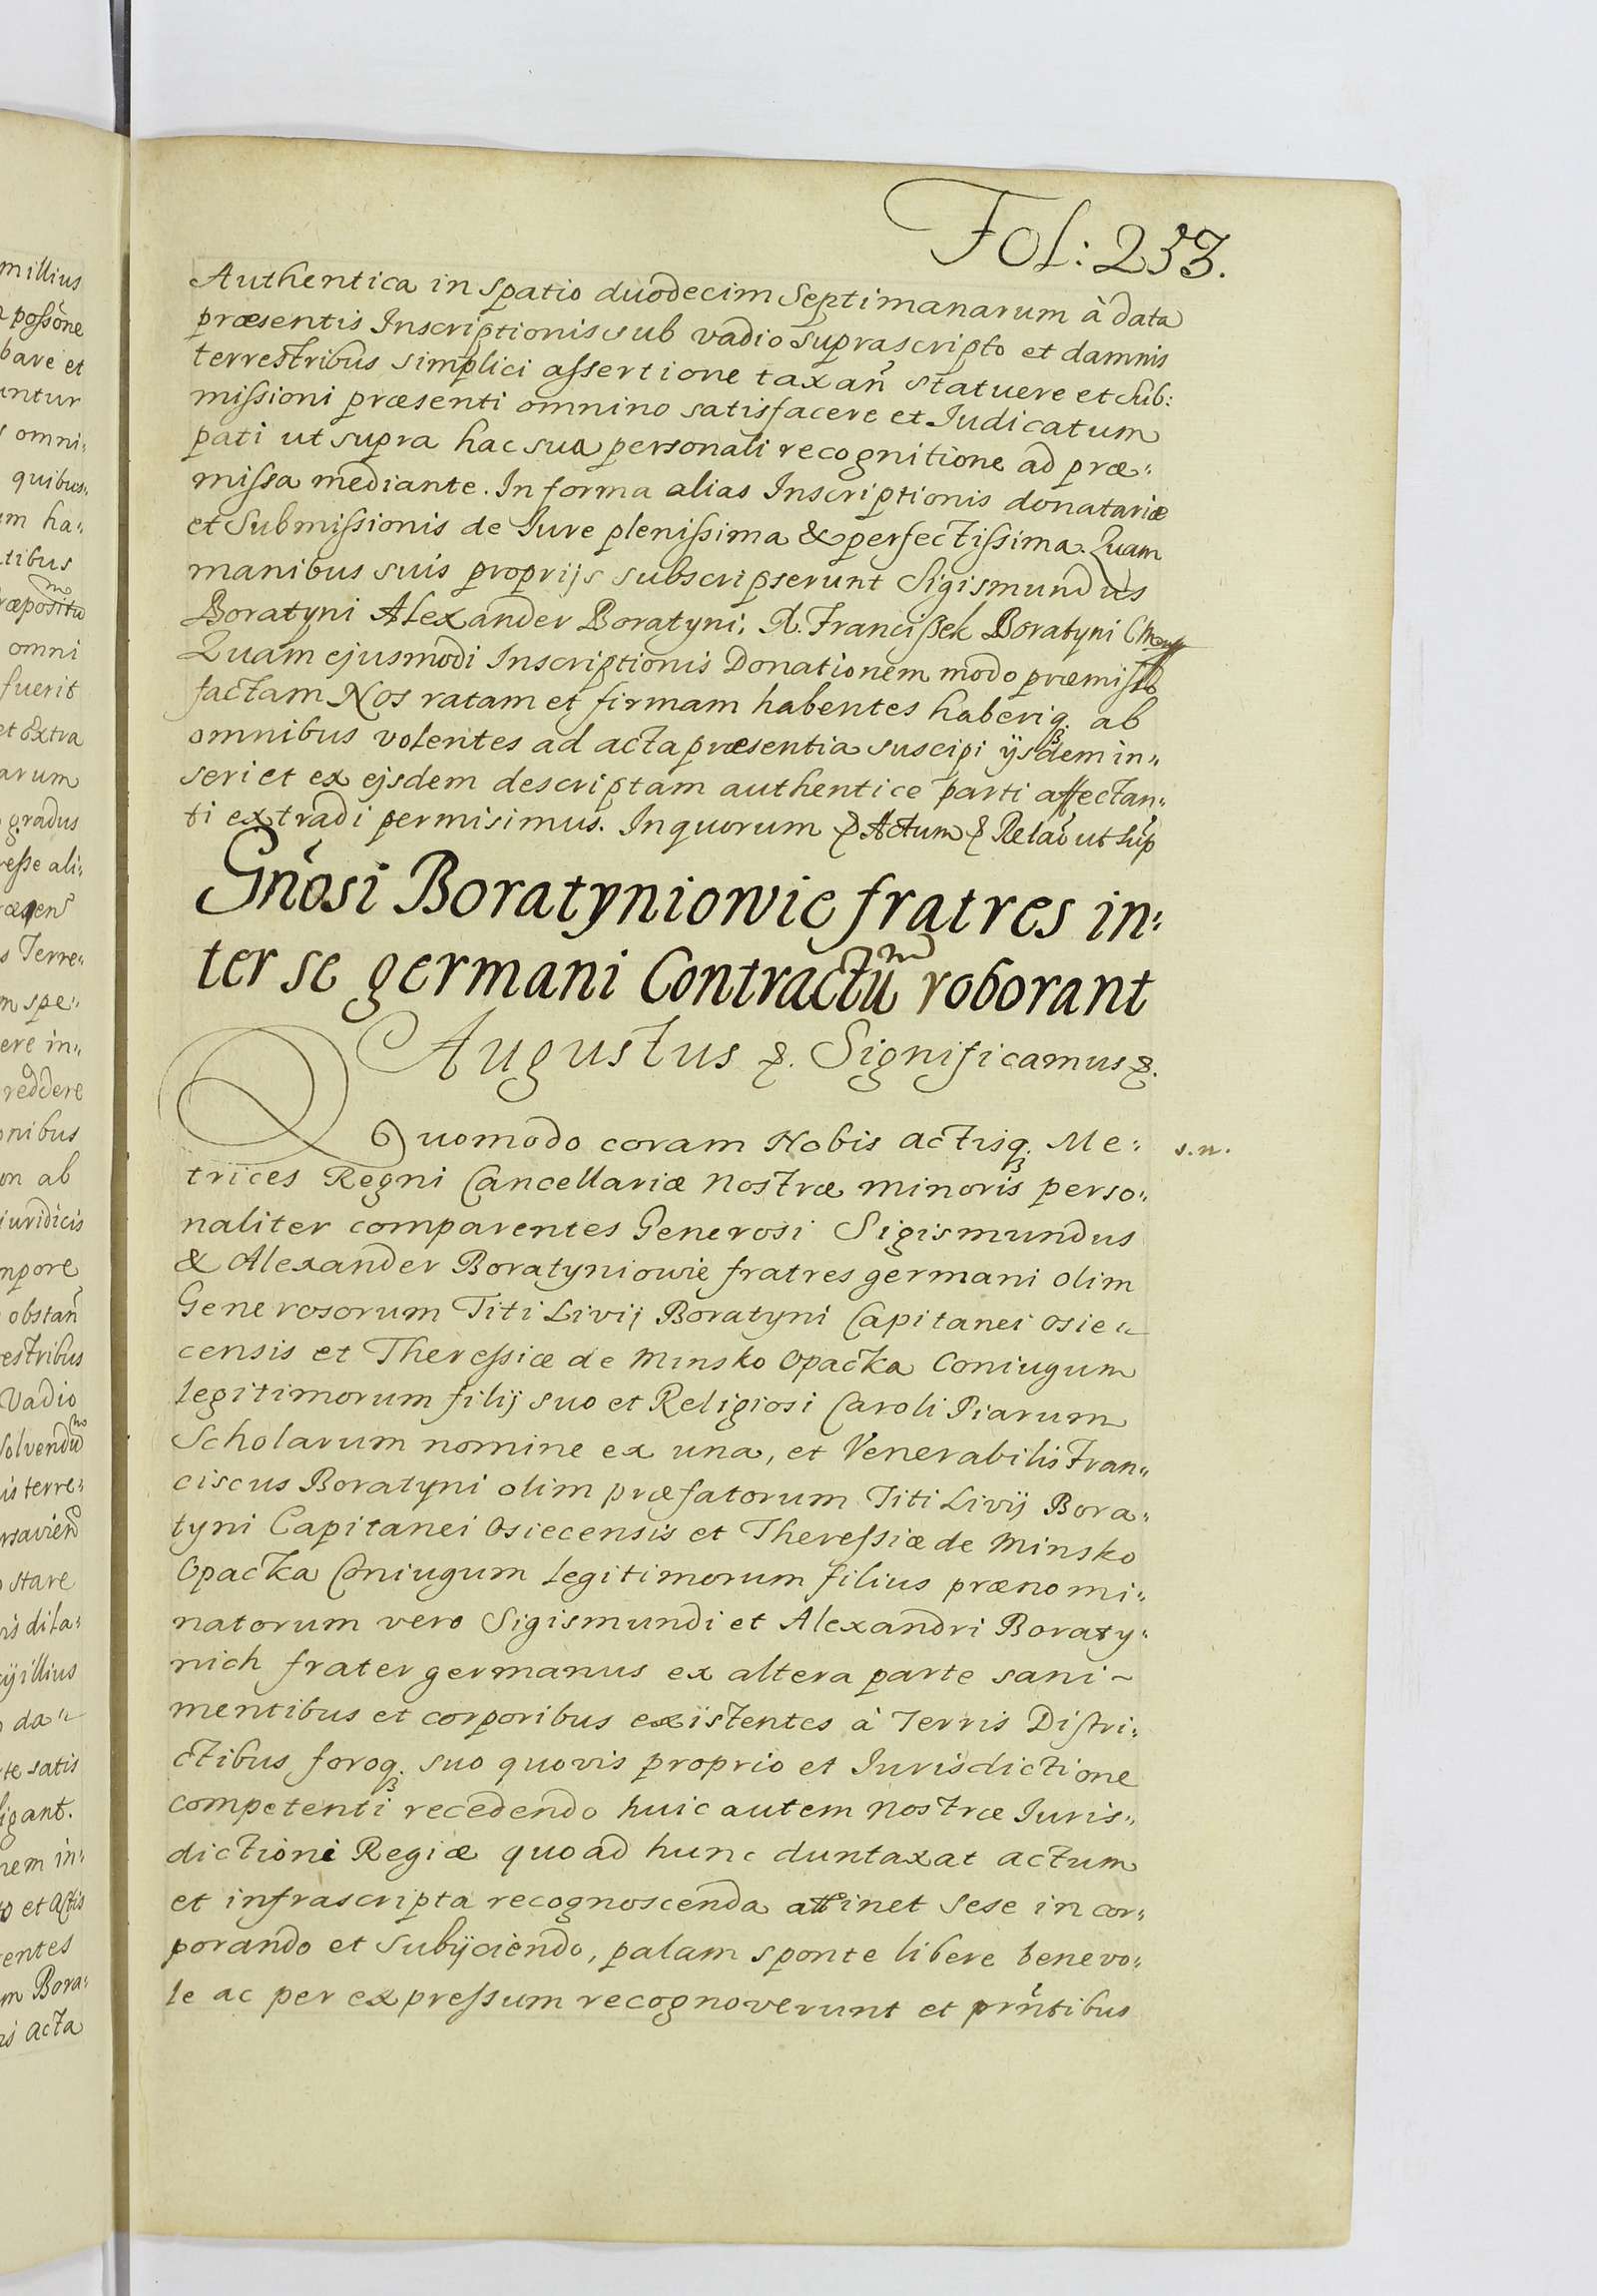 Fol: 253.
Authentica in spatio duodecim Septimanarum à data
præsentis Inscriptionis sub vadio suprascripto et damnis
terrestribus simplici assertione taxan̄ statuere et Sub:
missioni præsenti omnino satisfacere et Iudicatum
pati ut supra hac sua personali recognitione ad præ:
missa mediante. In forma alias Inscriptionis donatariæ
et Submissionis de Iure plenissima & perfectissima. Quam
manibus suis proprijs subscripserunt Sigismundus
Boratyni Alexander Boratyni, X. Franciszek Boratyni
Quam ejusmodi Inscriptionis Donationem modo præmisso
factam Nos ratam et firmam habentes haberiq3. ab
omnibus volentes ad acta præsentia suscipi ijsdem in:
seri et ex ejsdem descriptam authentice parti affectan:
ti extradi permisimus. In quorum & Actum & Relāō ut sup̄
Gn̄osi Boratyniowie fratres in:
ter se germani Contractūm roborant
Augustus &. Significamus &.
Quomodo coram Nobis actisq3. Me:
s.n.
trices Regni Cancellariæ nostræ minoris perso:
naliter comparentes Generosi Sigismundus
& Alexander Boratyniowie fratres germani olim
Generosorum Titi Livij Boratyni Capitanei Osie:
censis et Theressiæ de Minsko Opacka Coniugum
legitimorum filij suo et Religiosi Caroli Piarum
Scholarum nomine ex una, et Venerabilis Fran:
ciscus Boratyni olim præfatorum Titi Livij Bora:
tyni Capitanei Osiecensis et Theressiæ de Minsko
Opacka Coniugum legitimorum filius prænomi:
natorum vero Sigismundi et Alexandri Boraty:
nich frater germanus ex altera parte sani ~
mentibus et corporibus existentes à Terris Distri:
ctibus foroq3. suo quovis proprio et Iurisdictione
competenti recedendo huic autem nostræ Iuris:
dictioni Regiæ quoad hunc duntaxat actum
et infrascripta recognoscenda attinet sese incor:
porando et subijciendo, palam sponte libere benevo:
le ac per expressum recognoverunt et prn̄tibus